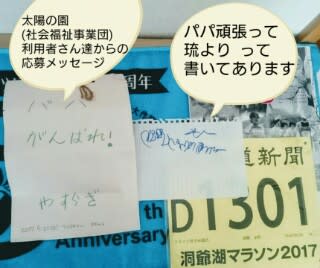 太陽の園
(社会福祉事業団)
利用者さん達からの
応募メッセージ
パパ頑張って
琉より って
書いてあります
周年
パパ
がんばれ!
やすぎ
th
Anniversary
道新聞
D1301
洞爺湖マラソン2017